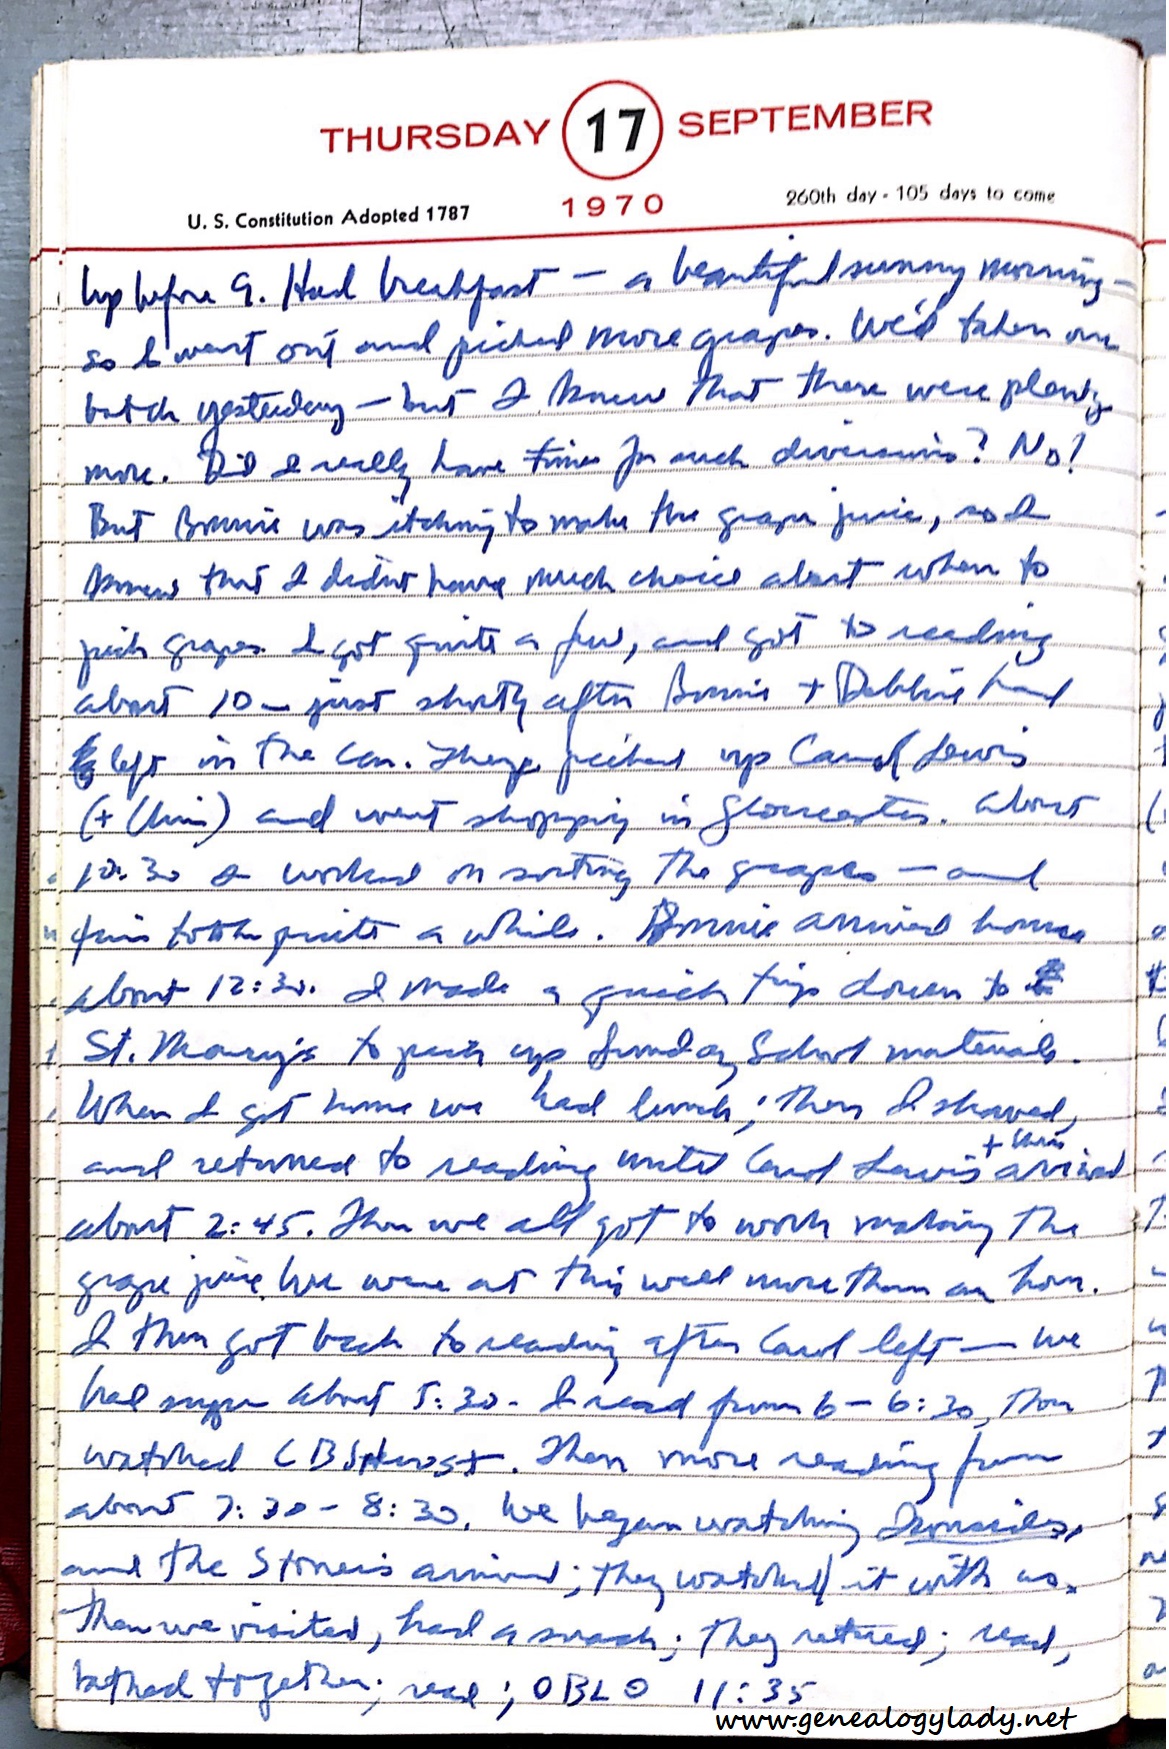 THURSDAY 17 SEPTEMBER
U. S. Constitution Adopted 1787 1970 260th day - 105 days to come
Up before 9. Had breakfast — a beautiful sunny morning —
so I went out and picked more grapes. We'd taken one
batch yesterday — but I knew that there were plenty
more. Did I really have time for such diversions? No!
But Bonnie was itching to make the grape juice, so I
knew that I didn't have much choice about when to
pick grapes. I got quite a few, and got to reading
about 10 — just shortly after Bonnie + Debbie had
left in the car. They picked up Carol Lewis
(+ Chris) and went shopping in Gloucester. About
10:30 I worked on sorting the grapes — and
quite a while. Bonnie arrived home
about 12:30. I made a quick trip down to
St. Mary's to pick up Sunday School materials.
When I got home we had lunch; then I shaved,
and returned to reading until Carol Lewis + Chris arrived
about 2:45. Then we all got to work making the
grape juice. We were at this well more than an hour.
I then got back to reading after Carol left — we
had supper about 5:30. I read from 6 – 6:30, then
watched CBS. Then more reading from
about 7:30 – 8:30. We began watching Ironsides,
and the Stones arrived; they watched it with us.
Then we visited, had a snack; they retired; read,
bathed together; read; OBLO 11:35
www.genealogylady.net